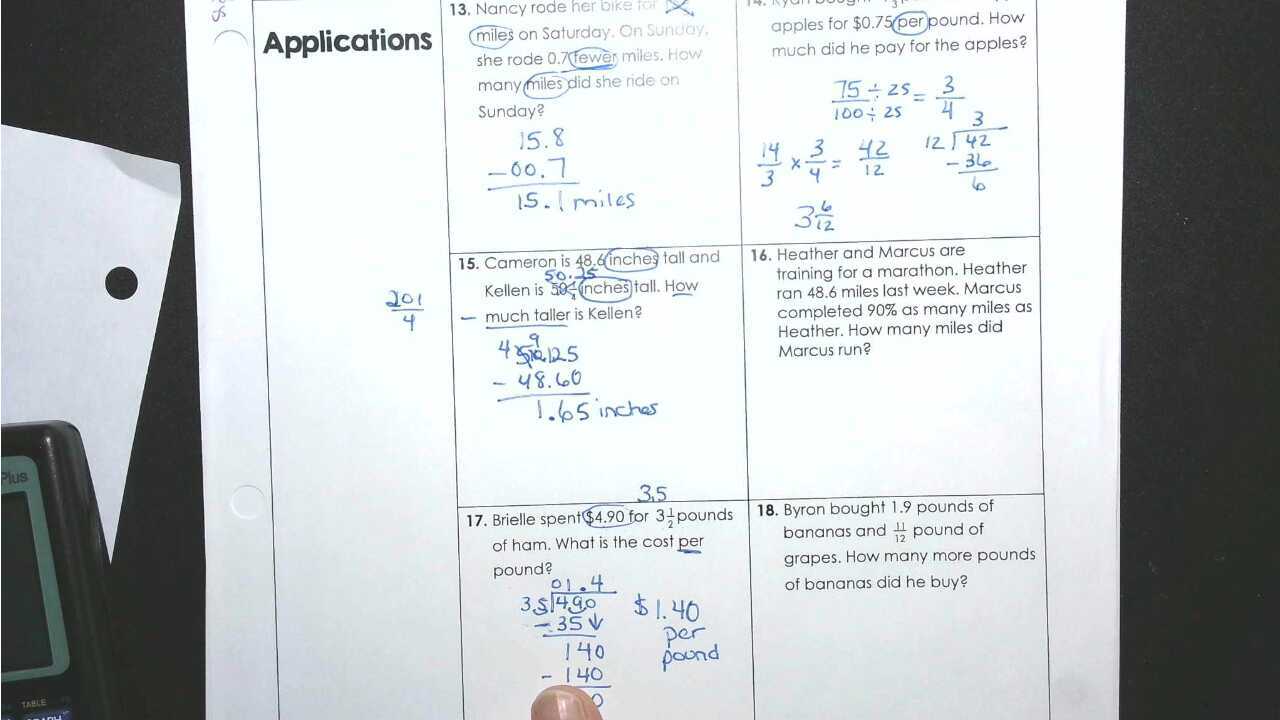 Applications
13. Nancy rode her bike for
miles on Saturday. On Sunday,
she rode 0.7 fewer miles. How
many miles did she ride on
Sunday?
15.8
-00.7
15.1 miles
apples for $0.75 per pound. How
much did he pay for the apples?
75 ÷ 25 = 3
100 ÷ 25 4
14/3 × 3/4 = 42/12
3
12 42
-36
6
3 6/12
201/4
15. Cameron is 48.6 inches tall and
50.25
Kellen is 50 1/4 inches tall. How
- much taller is Kellen?
- 48.60
1.65 inches
16. Heather and Marcus are
training for a marathon. Heather
ran 48.6 miles last week. Marcus
completed 90% as many miles as
Heather. How many miles did
Marcus run?
3.5
17. Brielle spent $4.90 for 3 1/2 pounds
of ham. What is the cost per
pound?
01.4
35 490
-35
140
-140
0
$1.40
per
pound
18. Byron bought 1.9 pounds of
bananas and 11/12 pound of
grapes. How many more pounds
of bananas did he buy?
Plus
TABLE